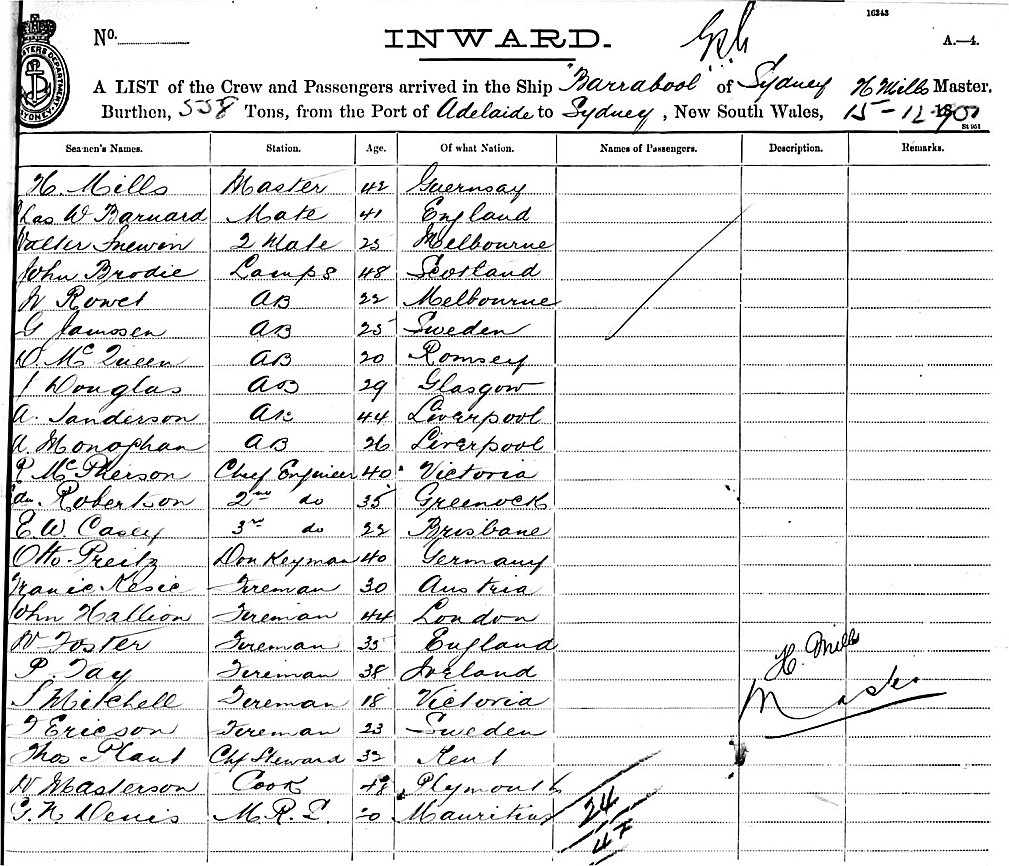 16343
No.
INWARD.
A.—4.
A LIST of the Crew and Passengers arrived in the Ship "Barrabool" of Sydney H Mills Master,
Burthen, 558 Tons, from the Port of Adelaide to Sydney, New South Wales, 15-12-
St 951
Seamen's Names. Station. Age. Of what Nation. Names of Passengers. Description. Remarks.
H. Mills Master 42 Guernsay
Chas W Barnard Mate 41 England
Walter 2 Mate 25 Melbourne
John Brodie Lamps 48 Scotland
W Rowet AB 22 Melbourne
G Janssen AB 25 Sweden
D. McQueen AB 20 Romsey
J Douglas AB 29 Glasgow
A. Sanderson AB 44 Liverpool
A Monoghan AB 26 Liverpool
P McPherson Chief Engineer 40 Victoria
Edw. Robertson 2nd do 35 Greenock
E. W. Casey 3rd do 22 Brisbane
Otto Preitz Donkeyman 40 Germany
Franic Kesic Fireman 30 Austria
John Hallion Fireman 44 London
W Foster Fireman 35 England
P. Fay Fireman 38 Ireland
S Mitchell Fireman 18 Victoria
F Ericson Fireman 23 Sweden
Thos Plant Chf Steward 32 Kent
W Masterson Cook 48 Plymouth
G. N Denis M.R.S. 20 Mauritius
H. Mills
Master
24
47